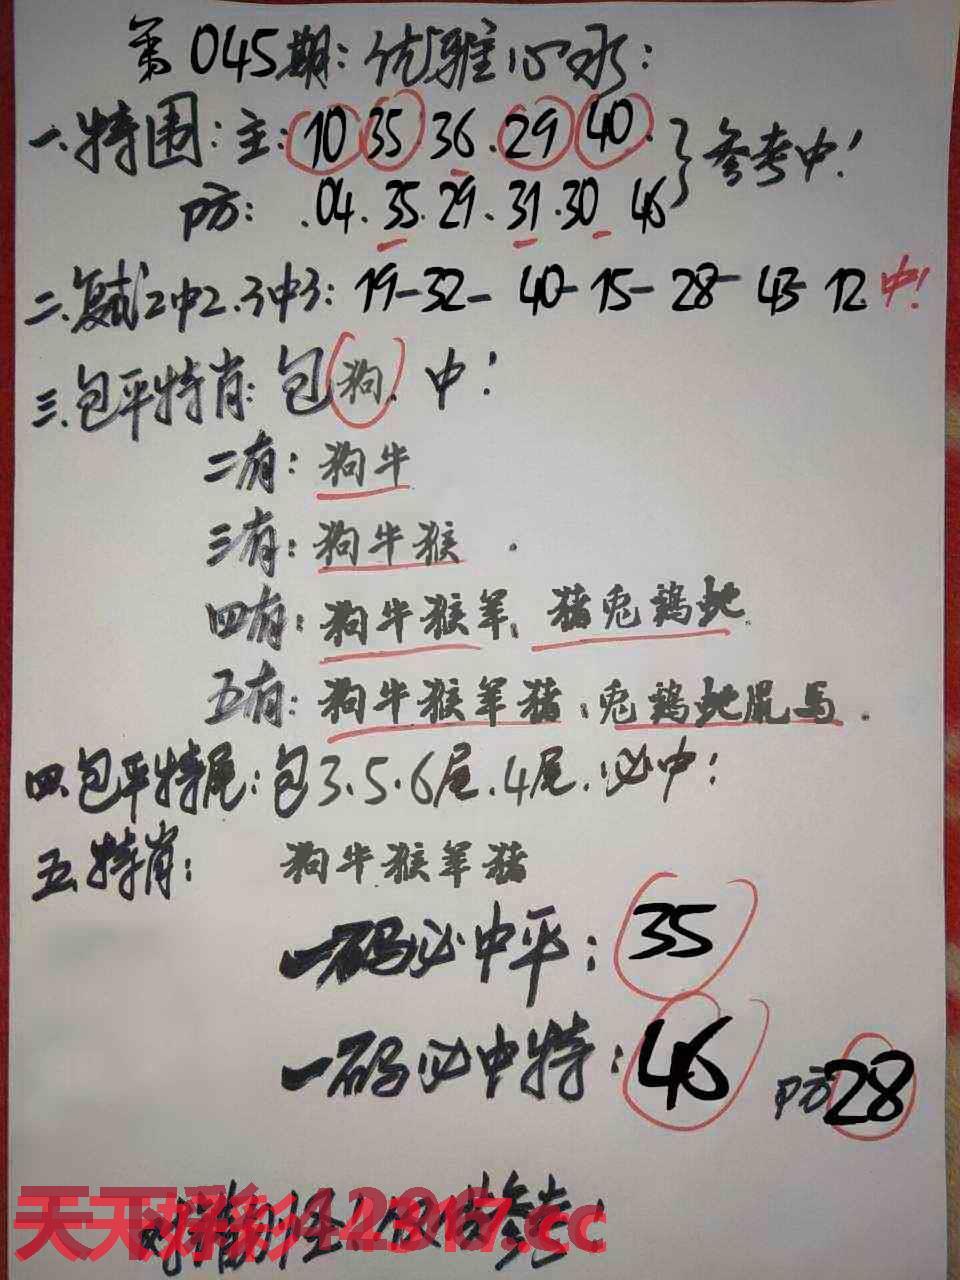 第045期：优雅心水：
一、特围：主：10 35.36.29 40.
防：.04.35.29.31.30 46
参考中！
二、复试2中2.3中3：19-32-40-15-28-43-12 中！
三、包平特肖：包狗.中！
二有：狗牛
三有：狗牛猴.
四有：狗牛猴羊、猪兔鸡蛇
五有：狗牛猴羊猪；兔鸡蛇鼠马.
四.包平特尾：包3.5.6尾.4尾.必中！
五.特肖：狗牛猴羊猪
一码必中平：35
一码必中特：46 防28
天下彩.cc
参考！